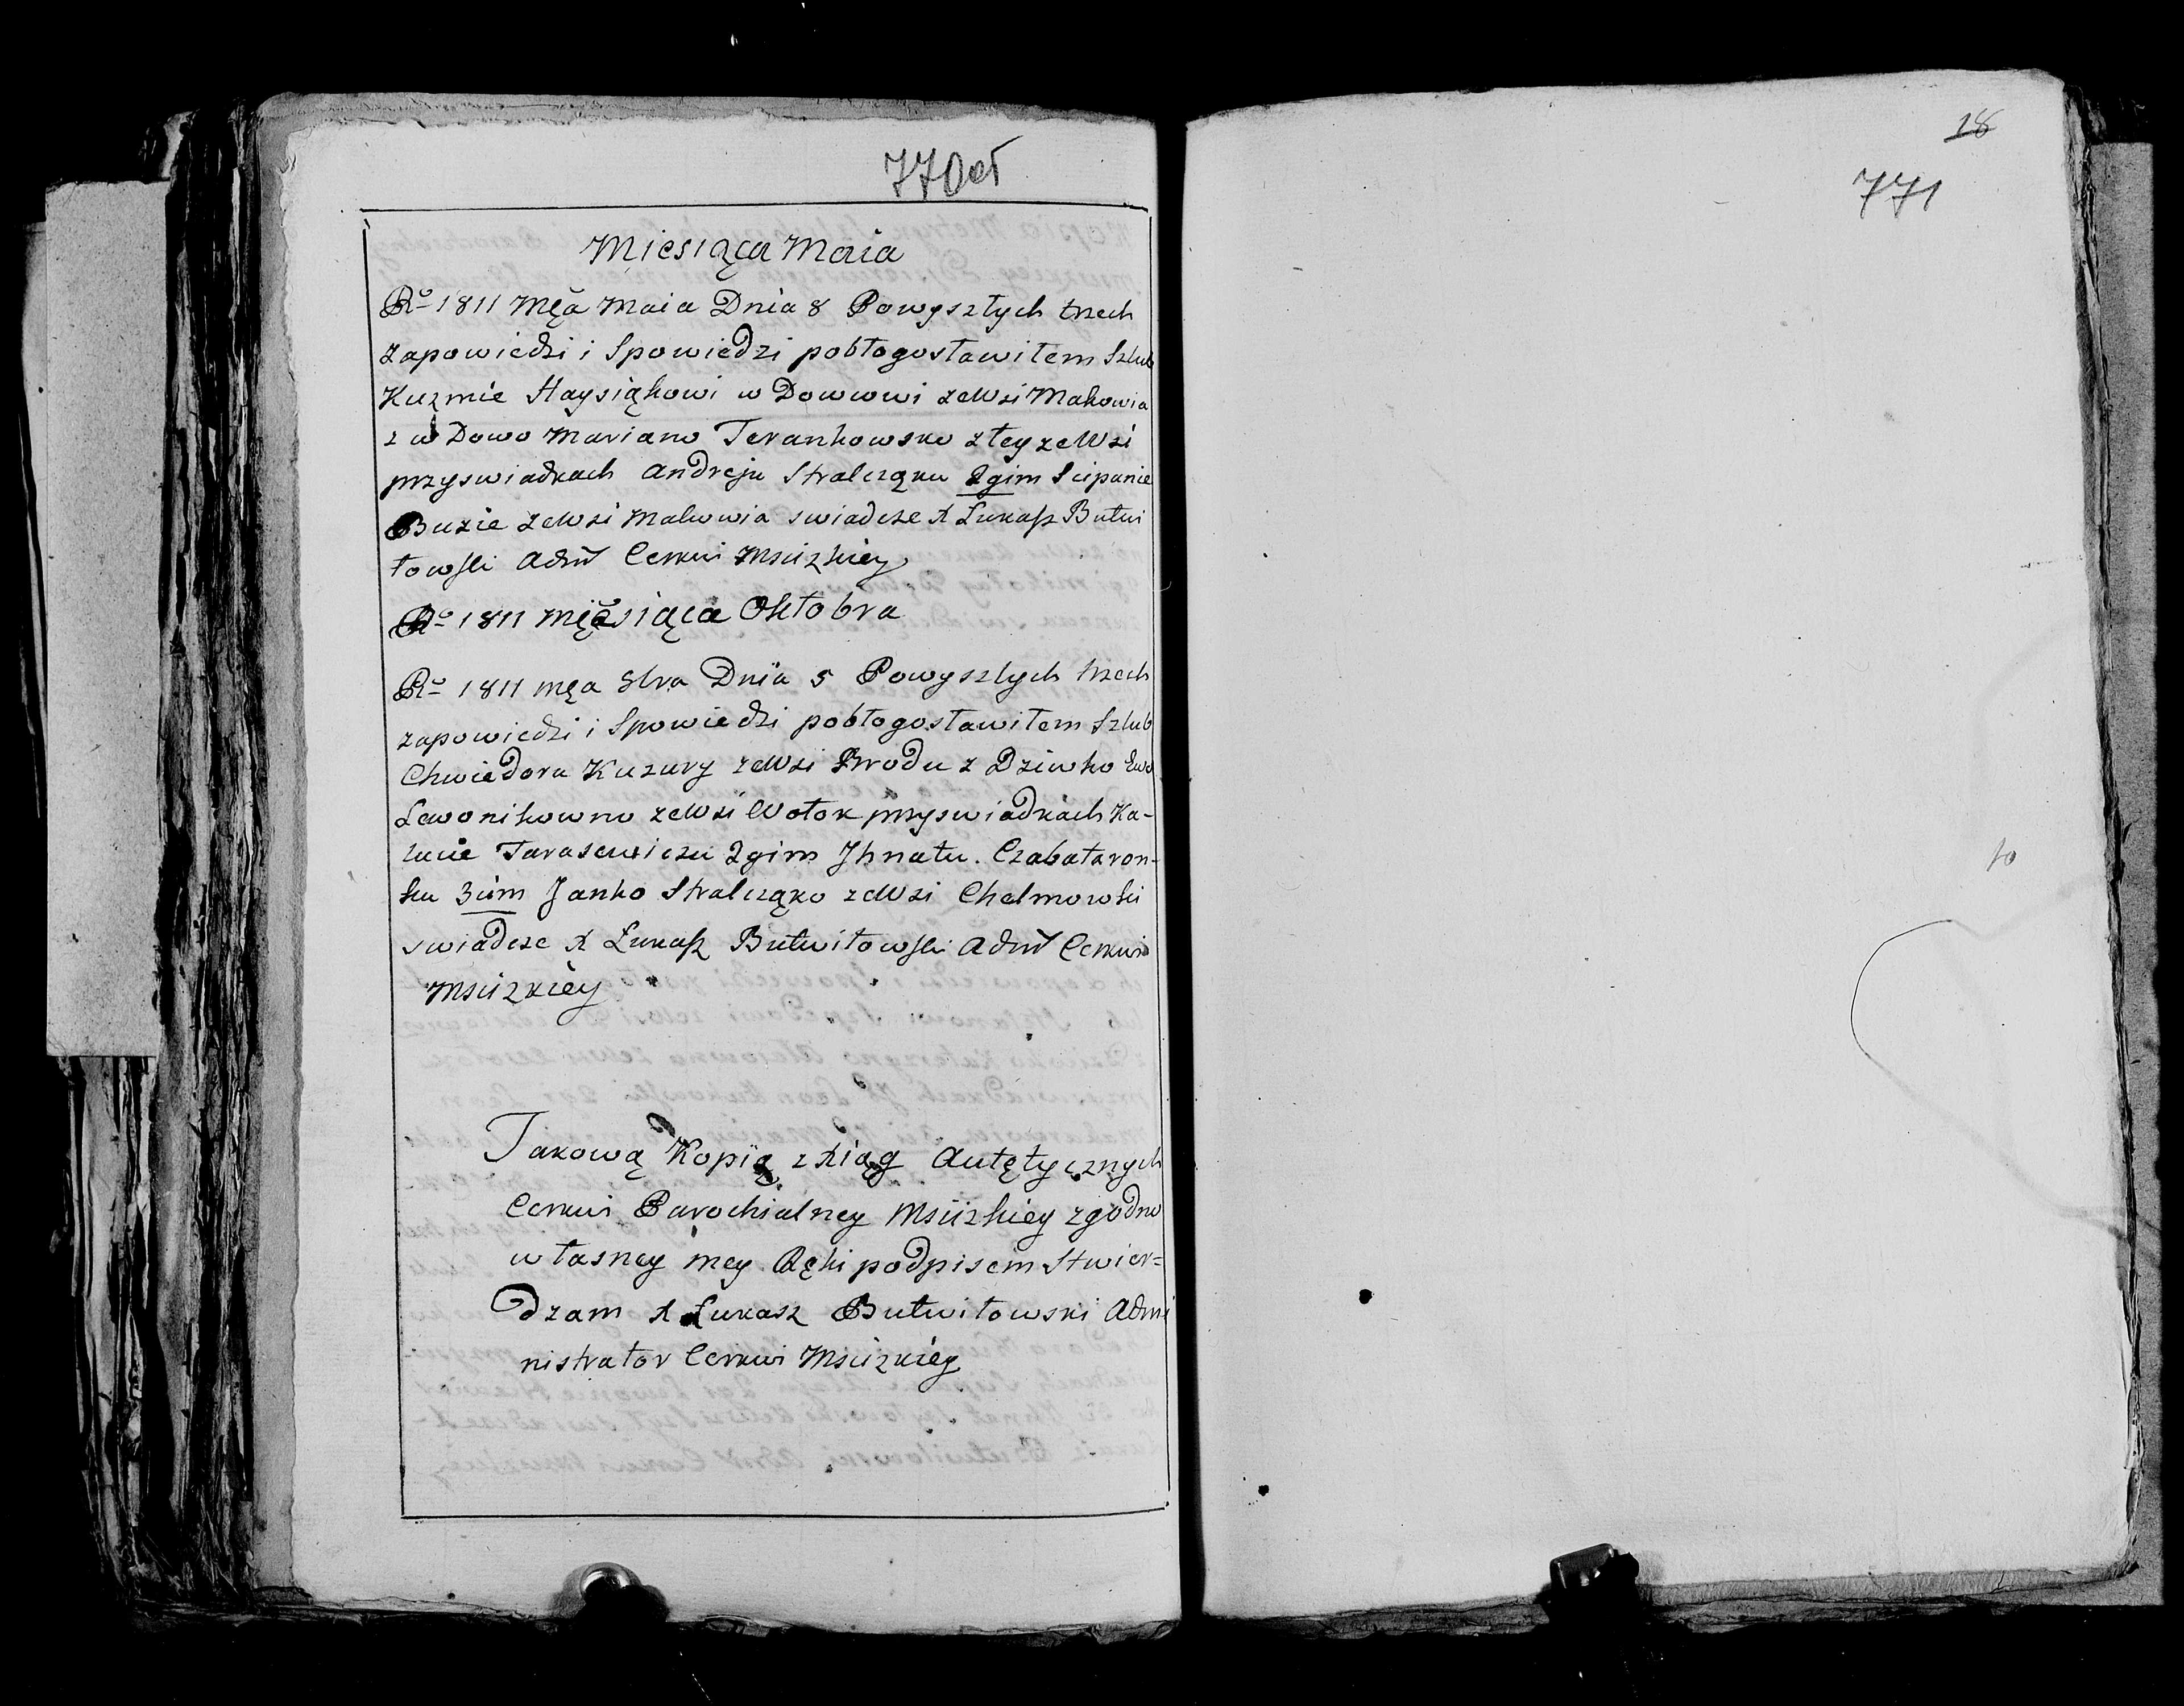 770об
Miesiąca Maia
Ro 1811 Męa Maia Dnia 8 Powyszłych trzech
zapowiedzi i Spowiedzi pobłogosławiłem Szlub
Kuzmie Haysiąkowi wDowcowi zeWsi Makowia
z wDowo Mariano Terankowsko zteyzeWsi
przyswiadkach Andreju Stralcząku 2gim Scipanie
Buzie zeWsi Makowia swiadcze X Łukasz Butwi
łowski Admr Cerkwi Mscizkiey
Ro 1811 Męsiąca Oktobra
Ro 1811 męa 8bra Dnia 5 Powyszłych trzech
zapowiedzi i Spowiedzi pobłogosławiłem Szlub
Chwiedora Kuzury zeWsi Brodu z Dziwko Ewo
Lewonikowno zeWsi Wołok przyswiadkach Ka-
Tarasewiczu 2gim Jhnatu Czabataron-
ku 3cim Janko Stralcząko zeWsi Chelmowki
swiadcze X Łukasz Butwiłowski Admr Cerkwi
Mscizkiey
Takową Kopią z Xiąg Autętycznych
Cerkwi Parochialney Mscizkiey zgodno
własney mey Ręki podpisem Stwier=
dzam X Łukasz Butwiłowski Admi
nistrator Cerkwi Mscizkiey
18
771